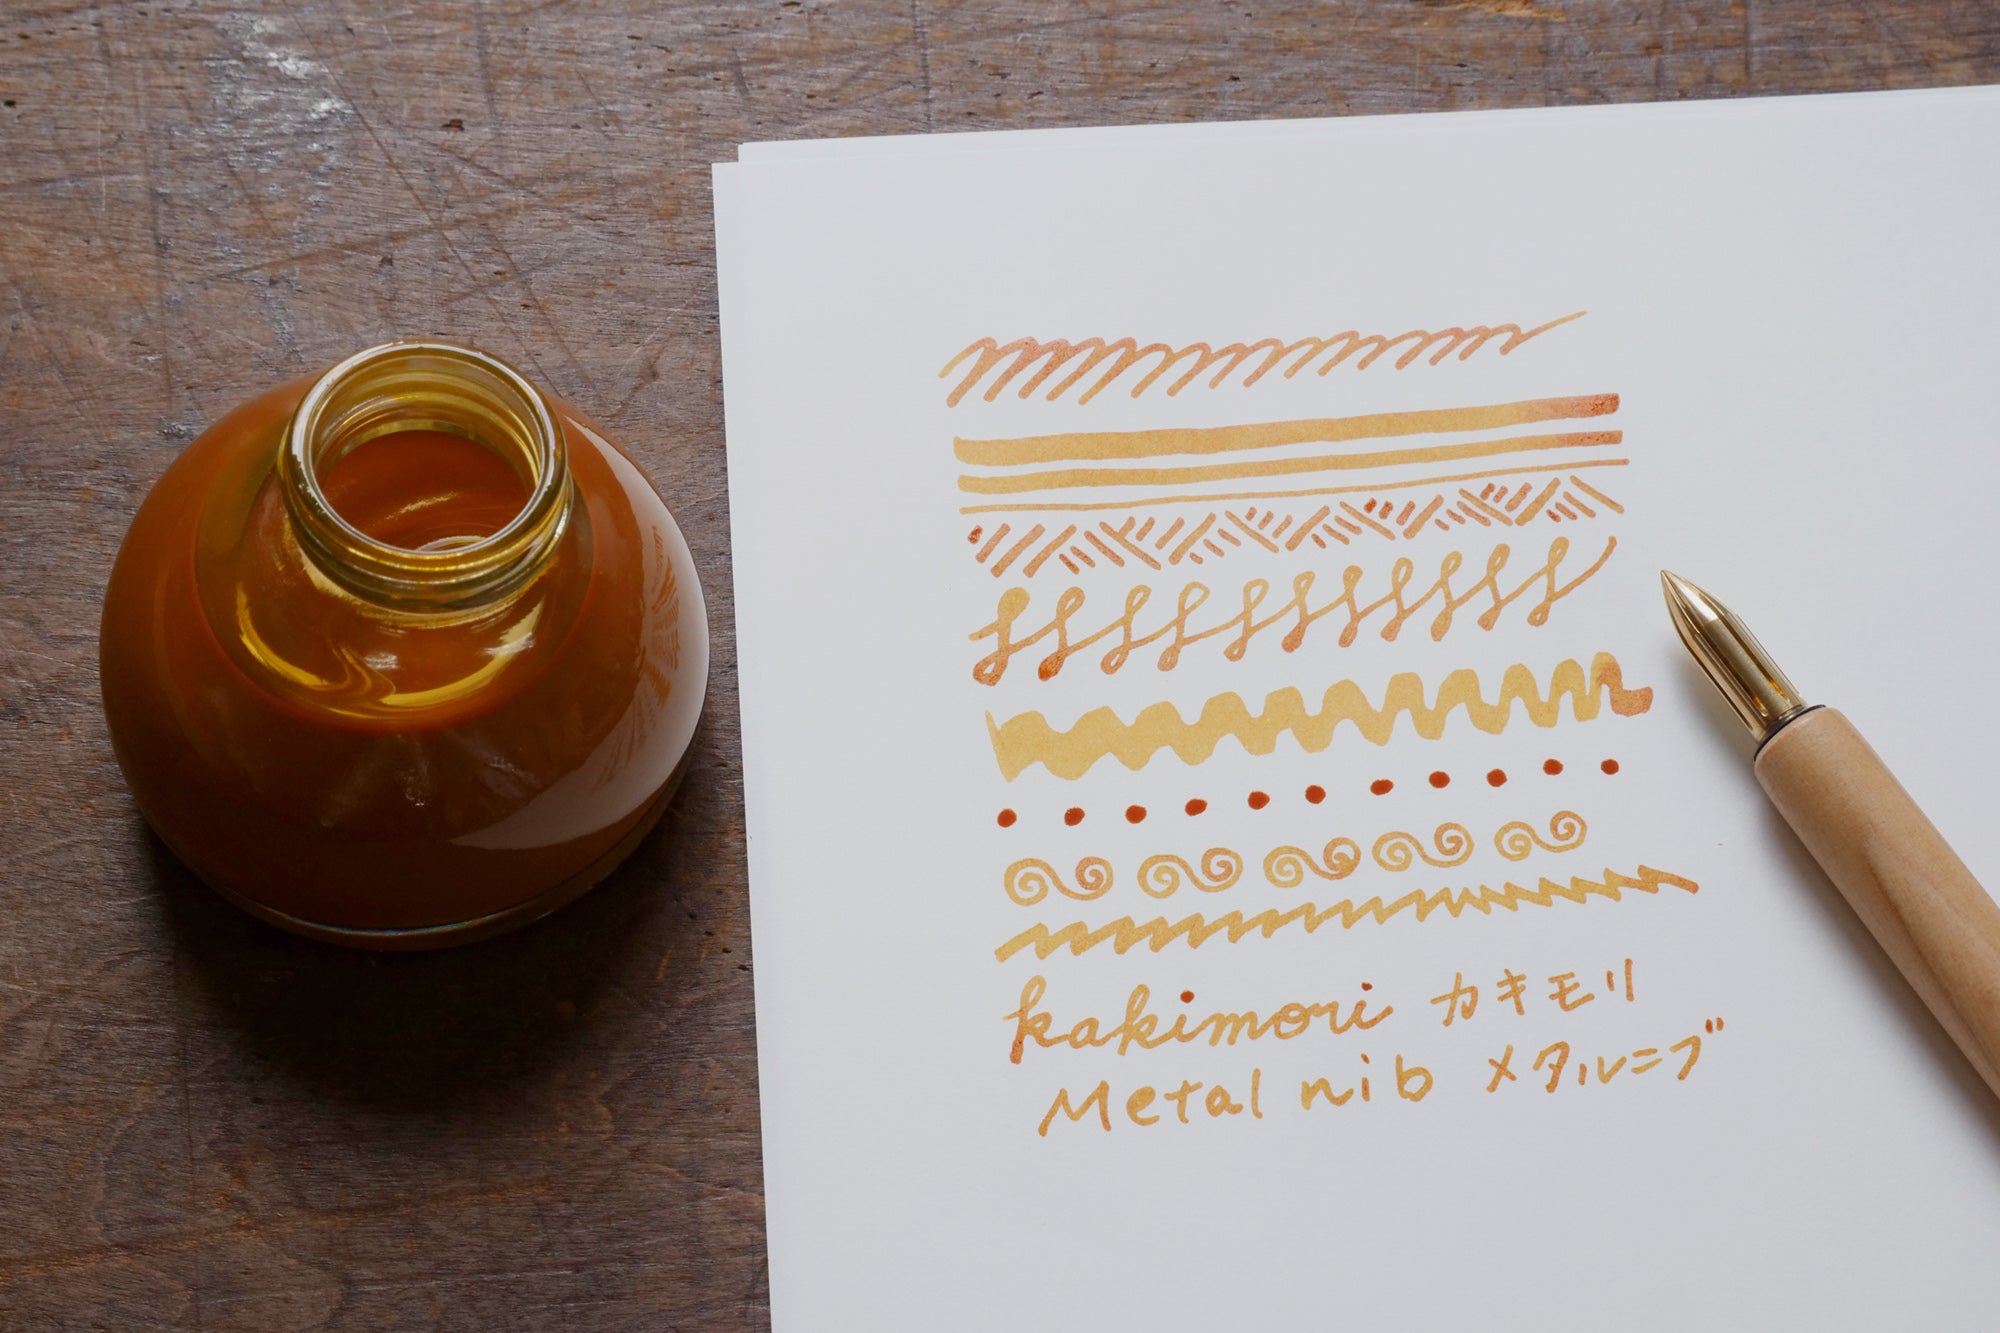 kakimori カキモリ
Metal nib メタルニブ